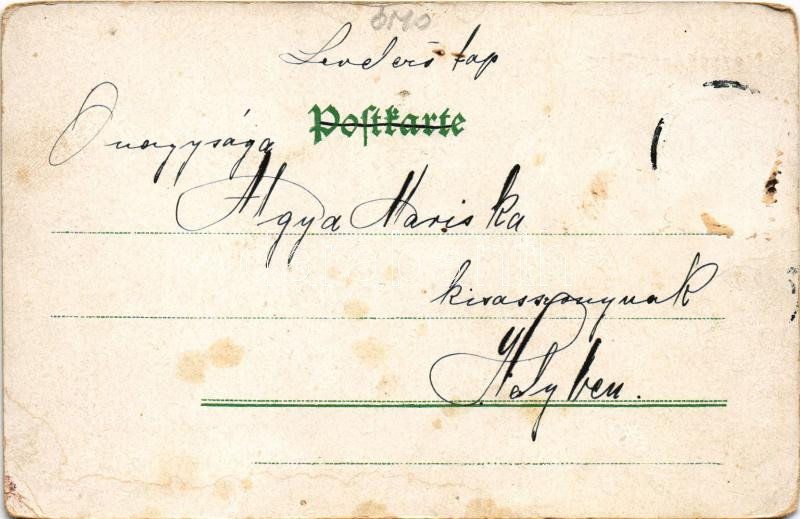 Levelező lap
Postkarte
Őnagysága
Agya Mariska
kisasszonynak
Helyben.